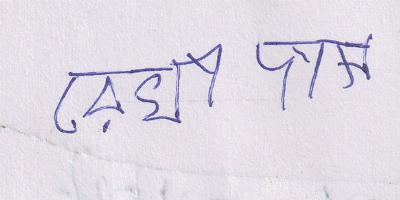 রেখা দাস